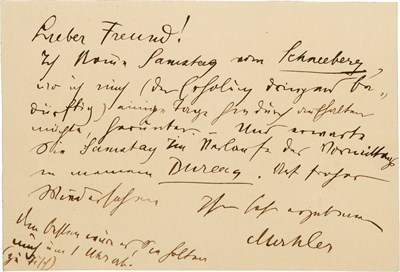 Lieber Freund!
Ich komme Samstag vom Schneeberg,
wo ich mich (der Erholung dringend be-
dürftig) einige Tage hindurch aufhalten
möchte, herunter. – Und erwarte
Sie Samstag im Verlaufe des Vormittags
in meinem Bureau. Auf frohes
Wiedersehen
Ihr sehr ergebener
Mahler
Am besten wäre es, Sie holten
mich um 1 Uhr ab.